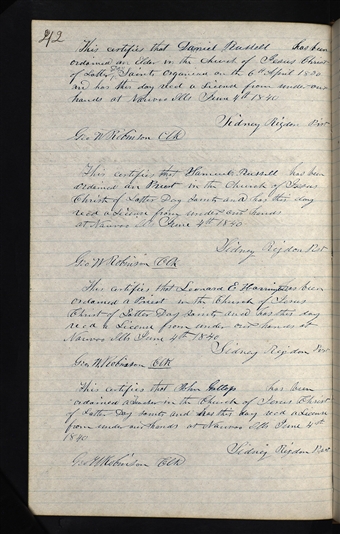 42
This certifies that Daniel Russell has been
ordained an Elder in the church of Jesus Christ
of Latter Day Saints organized on the 6th April 1830
and has this day recd a License from under our
hands at Nauvoo Ills June 4th 1840
Sidney Rigdon Prst
Geo W Robinson Clk
This certifies that Russell has been
ordained an Priest in the Church of Jesus
Christ of Latter Day Saints and has this day
recd a License from under our hands
at Nauvoo Ills June 4th 1840
Sidney Rigdon Prst
Geo W Robinson Clk
This certifies that Leonard E Harrington has been
ordained a Priest in the Church of Jesus
Christ of Latter Day Saints and has this day
recd a License from under our hands at
Nauvoo Ills June 4th 1840
Sidney Rigdon Prst
Geo W Robinson Clk
This certifies that John has been
ordained a in the Church of Jesus Christ
of Latter Day Saints and has this day recd a License
from under our hands at Nauvoo Ills June 4th
1840
Sidney Rigdon Prst
Geo W Robinson Clk